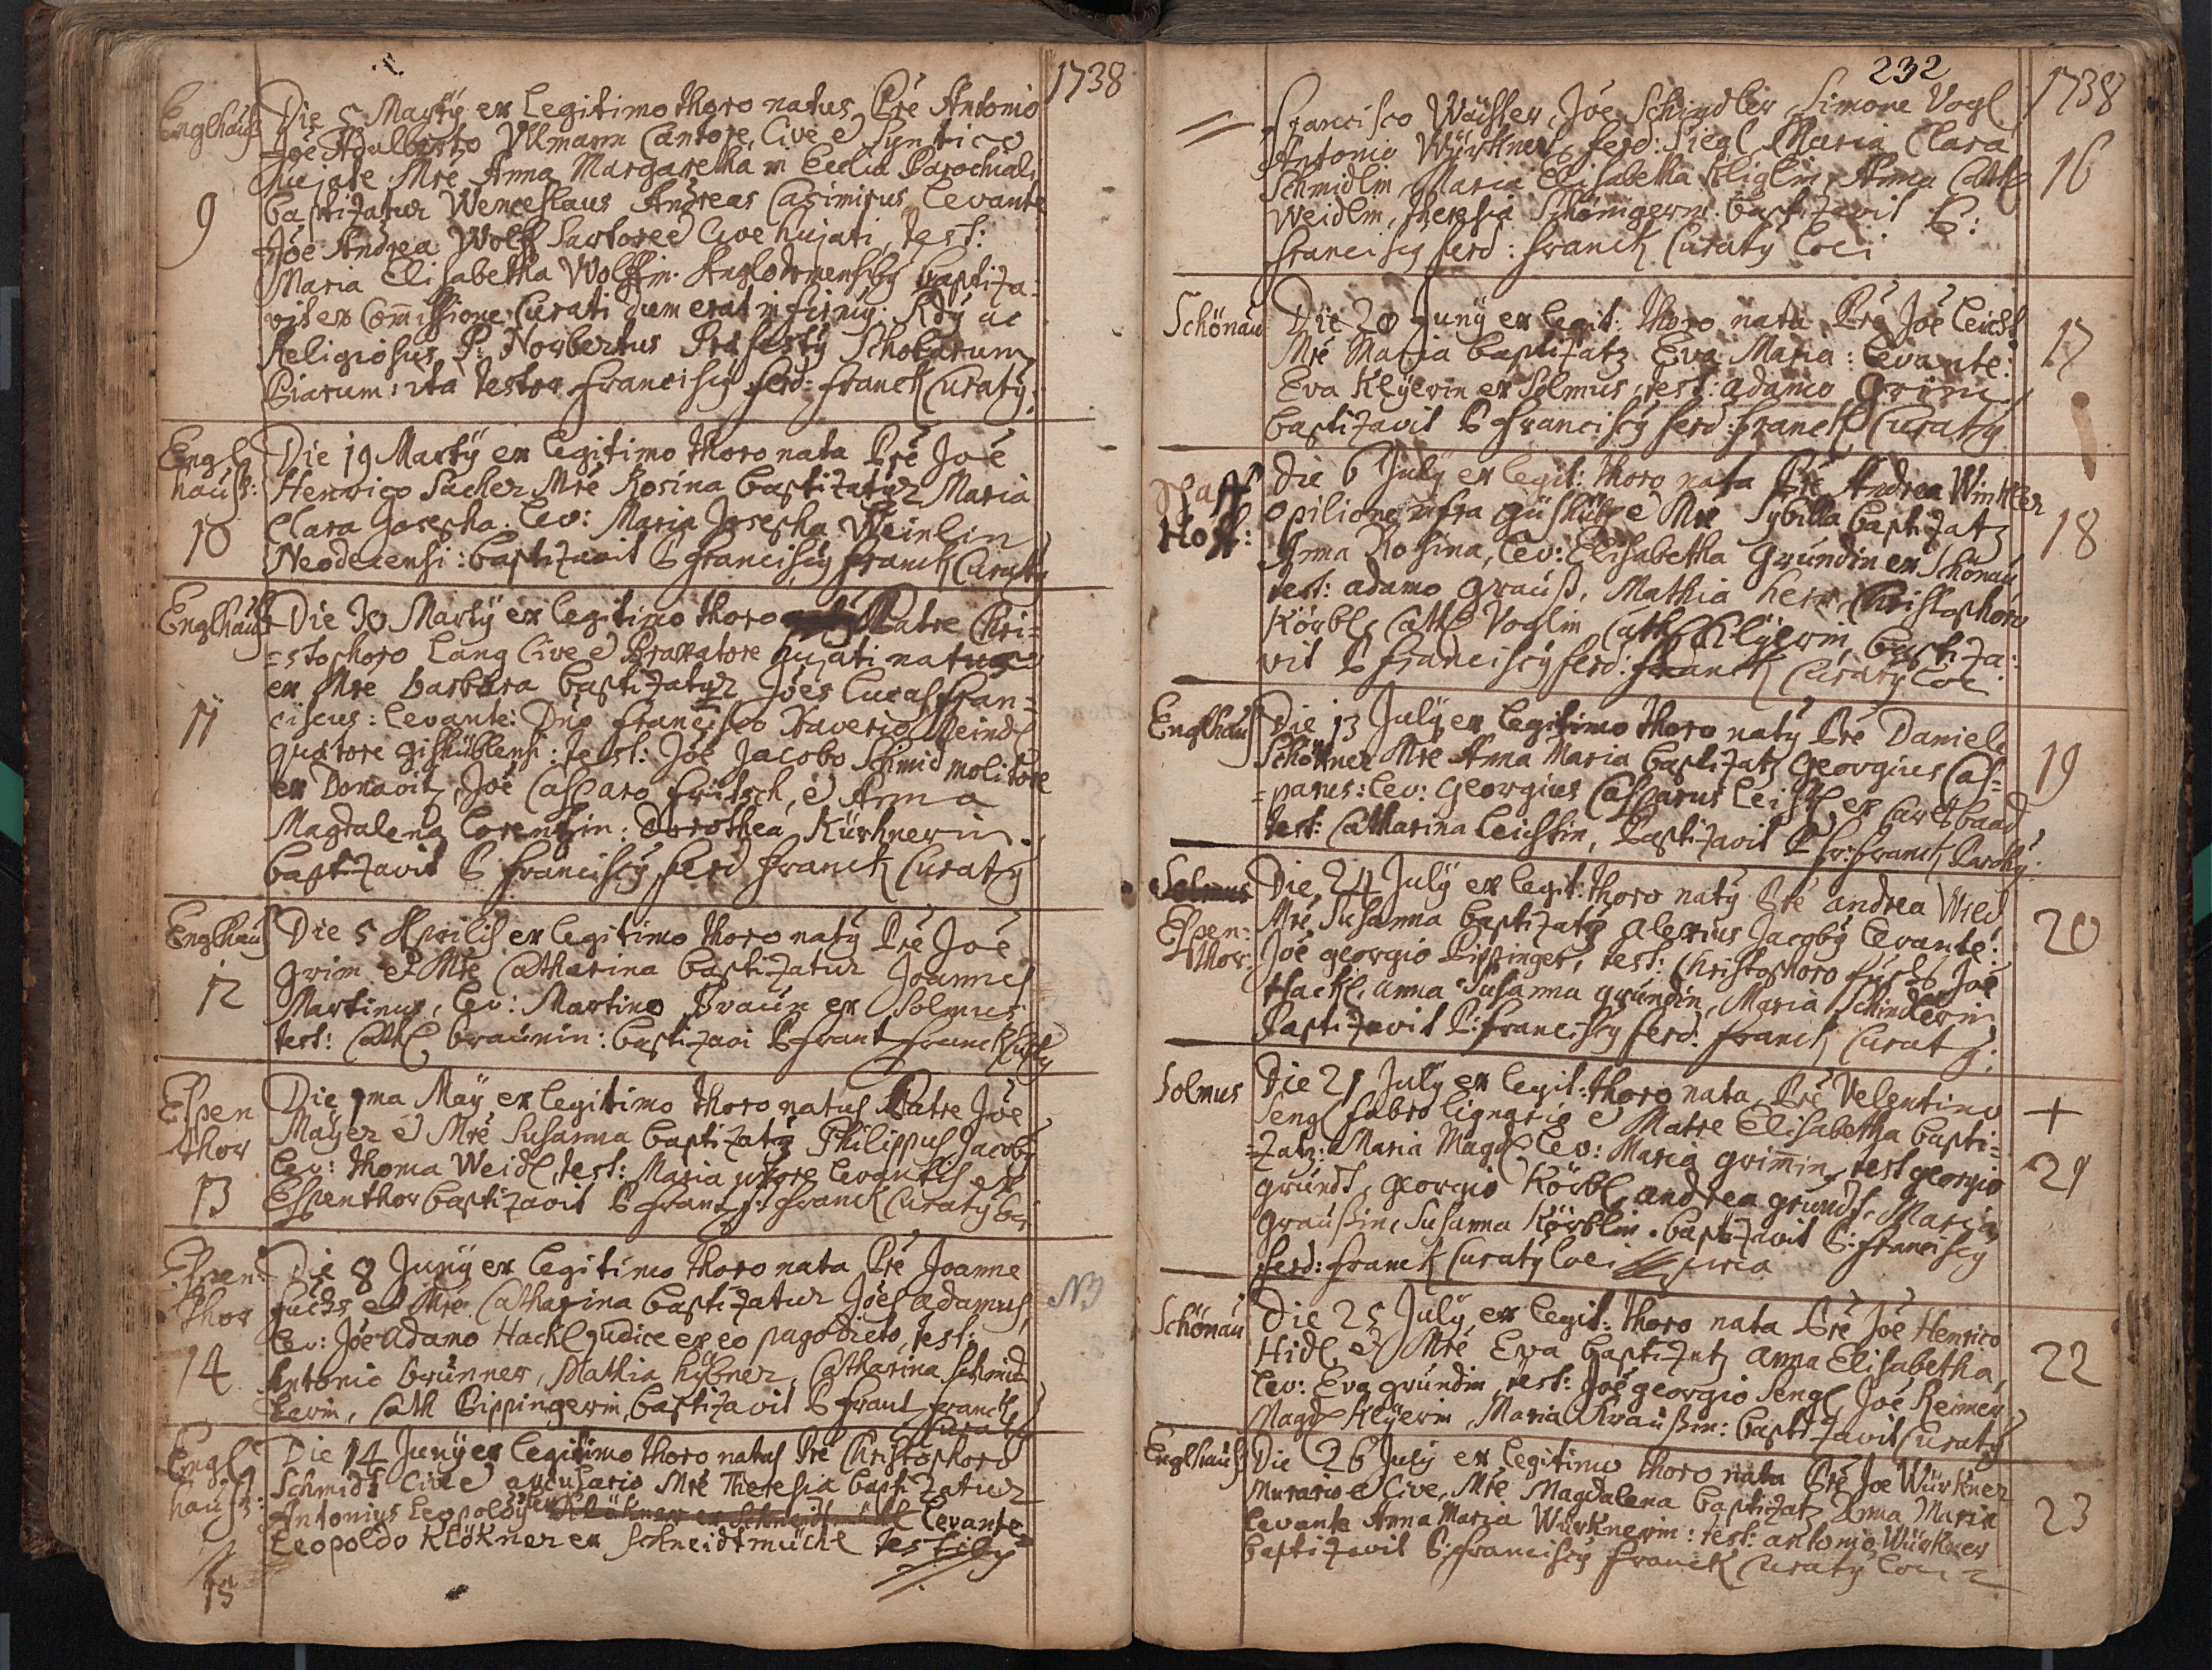 1738
Englhauß
9
Die 5 Martÿ ex legitimo thoro natus Pre Antonio
Joe Adalberto Ullmann Cantore, Cive et Syntico
hujate Mre Anna Margaretha in Ecclia Parochiali
baptizatur Wenceslaus Andreas Casimirus levante
Joe Andrea Wolff Sartore et Cive hujati, test:
Maria Elisabetha Wolffin. baptiza-
vit ex Commissione Curati dum erat infirmÿ: Rdÿ ac
Religiosus P: Norbertus Scholarum
Piarum: ita testor Franciscÿ Ferd: Franck Curatÿ.
Engl
hauß:
10
Die 19 Martÿ ex legitimo thoro nata Pre Joe
Henrico Sacher Mre Rosina baptizatur Maria
Clara Josepha. lev: Maria Josepha Weinlin
Neodecensi: baptizavit P Franciscÿ Franck Curatÿ
Englhauß
11
Die 30 Martÿ ex legitimo thoro Patre Chri-
stophoro Lang Cive et Braxatore hujati natus
ex Mre Barbara baptizatur Joes Lucas Fran-
ciscus: levante: Dno Francisco Xaverio Weindl
qustore gishüblensi: test: Joe Jacobo Schmid molitore
ex Donawitz, Joe Casparo Fritsch, et Anna
Magdalena Lorentzin: Dorothea Kürhnerin.
baptizavit P Franciscÿ Ferd Franck Curatÿ
Englhauß
12
Die 5 Aprilis ex legitimo thoro natÿ Pre Joe
Grim et Mre Catharina baptizatur Joannes
Martinus, lev: Martino Braün ex Solmus
test: Cath braünin: baptizavi P Frant Franck
Espen
thor
13
Die 1ma Maÿ ex legitimo thoro natus Patre Joe
Maÿer et Mre Susanna baptizatÿ Philippus Jacobÿ
lev: Thoma Weidl, test: Maria uxore levantis ex
Espenthor baptizavit P Frantz F: Franck Curatÿ
Espen:
thor
14
Die 8 Junÿ ex legitimo thoro nata Pre Joanne
Fuchs et Mre Catharina baptizatur Joes Adamus,
lev: Joe Adamo Hackl judice ex eo pago dicto, test:
Antonio Grünner, Mathia Hÿbner, Catharina Schmid
Lerin, Cath Pippingerin, baptizavit P Frant Franck
Curatÿ
NB
Engl
hauß:
15
Die 14 Junÿ ex legitimo thoro natus Pre Christophoro
Schmidt Cive et acicülario Mre Theresia baptizatur
Antonius Leopoldÿ levante
Leopoldo Klökner ex Schneidtmüchl testibÿ
232
1738
16
Francisco Wächter, Joe Schindler, Simone Vogl
Antonio Würkner, Ferd: Siegl Maria Clara
Schmidlin, Maria Elisabetha Siglin, Anna Cath
Weidlin, Theresia Schönigerin. baptizavit P:
Franciscÿ Ferd: Franck Curatÿ loci
Schönau
17
Die 20 Junÿ ex legit: thoro nata Pre Joe Leicht
Mre Maria baptizatz Eva Maria: levante:
Eva Klÿerin ex Solmus, test: adamo Grim
baptizavit P Franciscÿ Ferd: Franck Curatÿ
Hoff:
18
Die 6 Julÿ ex legit: thoro nata Pre Andrea Winkler
opilione infra güshübl et Mre Sÿbilla baptizatz
Anna Rosina, lev: Elisabetha Gründin ex Schönau
test: adamo Grauß, Mathia Herr, Christophoro
Körbl, Cath Voglin Cath Klÿerin, baptiza:
vit P Franciscÿ Ferd: Franck Curatÿ loci
Englhauß
19
Die 13 Julÿ ex legitimo thoro natÿ Pre Daniele
Schöttner Mre Anna Maria baptizatz Georgius Cas-
parus: lev: Georgius Casparus Leistl ex Carlsbaad
test: Catharina Leichtin, Baptizavit P Fr: Franck Parochÿ.
Solmus
Espen:
thor:
20
Die 24 Julÿ ex legit: thoro natÿ Pre andrea Wild
Mre Susanna baptizatÿ Alexius Jacobÿ levante:
Joe georgio Pippinger, test: Christophoro Fuchs Joe
Hackl, anna Susanna gründin, Maria Schinderin
Baptizavit P: Franciscÿ Ferd. Franck Curatÿ.
Solmus
+
21
Die 21 Julÿ ex legit: thoro nata, Pre Velentino
Sengl fabro lignario et Matre Elisabetha bapti-
zatz: Maria Magd lev: Maria Grimin, test georgio
gründt, georgio Körbl, andrea gründt, Maria
Graußin, Susanna Körblin. baptizavit P: Franciscÿ
Ferd: Franck Curatÿ loci
Schönau
22
Die 25 Julÿ ex legit: thoro nata Pre Joe Henrico
Hidl et Mre Eva baptizatz anna Elisabetha,
lev: Eva gründin, test: Joe georgio Sengl, Joe Reimer
Magd Klÿerin, Maria Kraußin: baptizavit Curatÿ
Englhauß
23
Die 26 Julÿ ex legitimo thoro nata Pre Joe Würkner
Murario et Cive, Mre Magdalena baptizatz Anna Maria
levante Anna Maria Würknerin: test: antonio Würkner
baptizavit P: Franciscÿ Franck Curatÿ loci